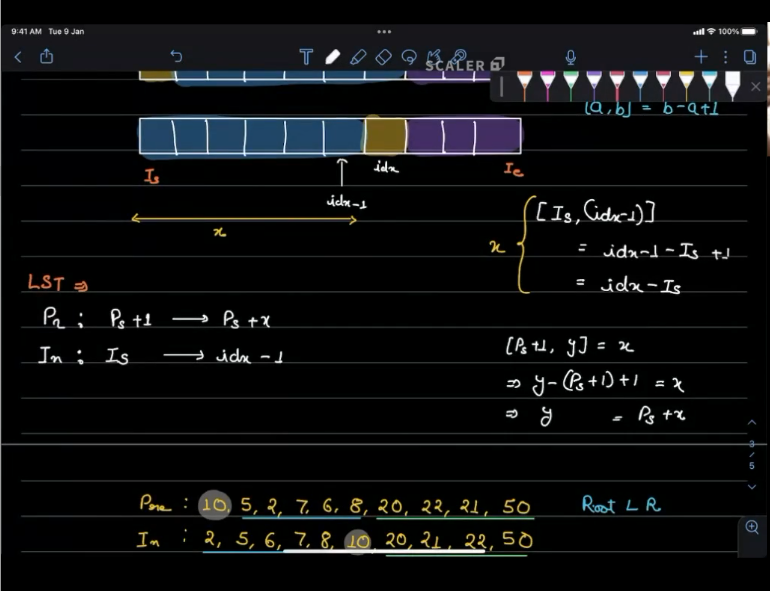 9:41 AM Tue 9 Jan
100%
SCALER
[a, b] = b-a+1
Is
idx
Ie
idx-1
x
x { [Is, (idx-1)]
= idx-1-Is +1
= idx-Is
LST ⇒
Pr : Ps+1 → Ps+x
In : Is → idx-1
[Ps+1, y] = x
⇒ y-(Ps+1)+1 = x
⇒ y = Ps+x
3/5
Pre : 10, 5, 2, 7, 6, 8, 20, 22, 21, 50 Root L R
In : 2, 5, 6, 7, 8, 10, 20, 21, 22, 50